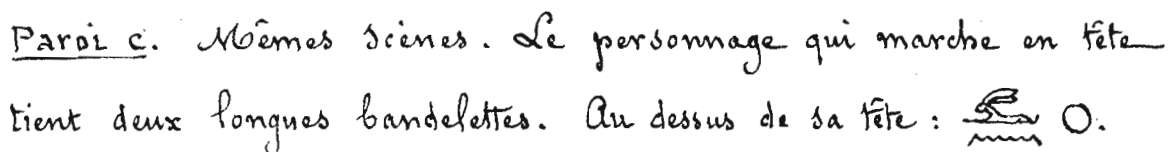 Paroi c. Mêmes scènes. Le personnage qui marche en tête
tient deux longues bandelettes. Au dessus de sa tête :